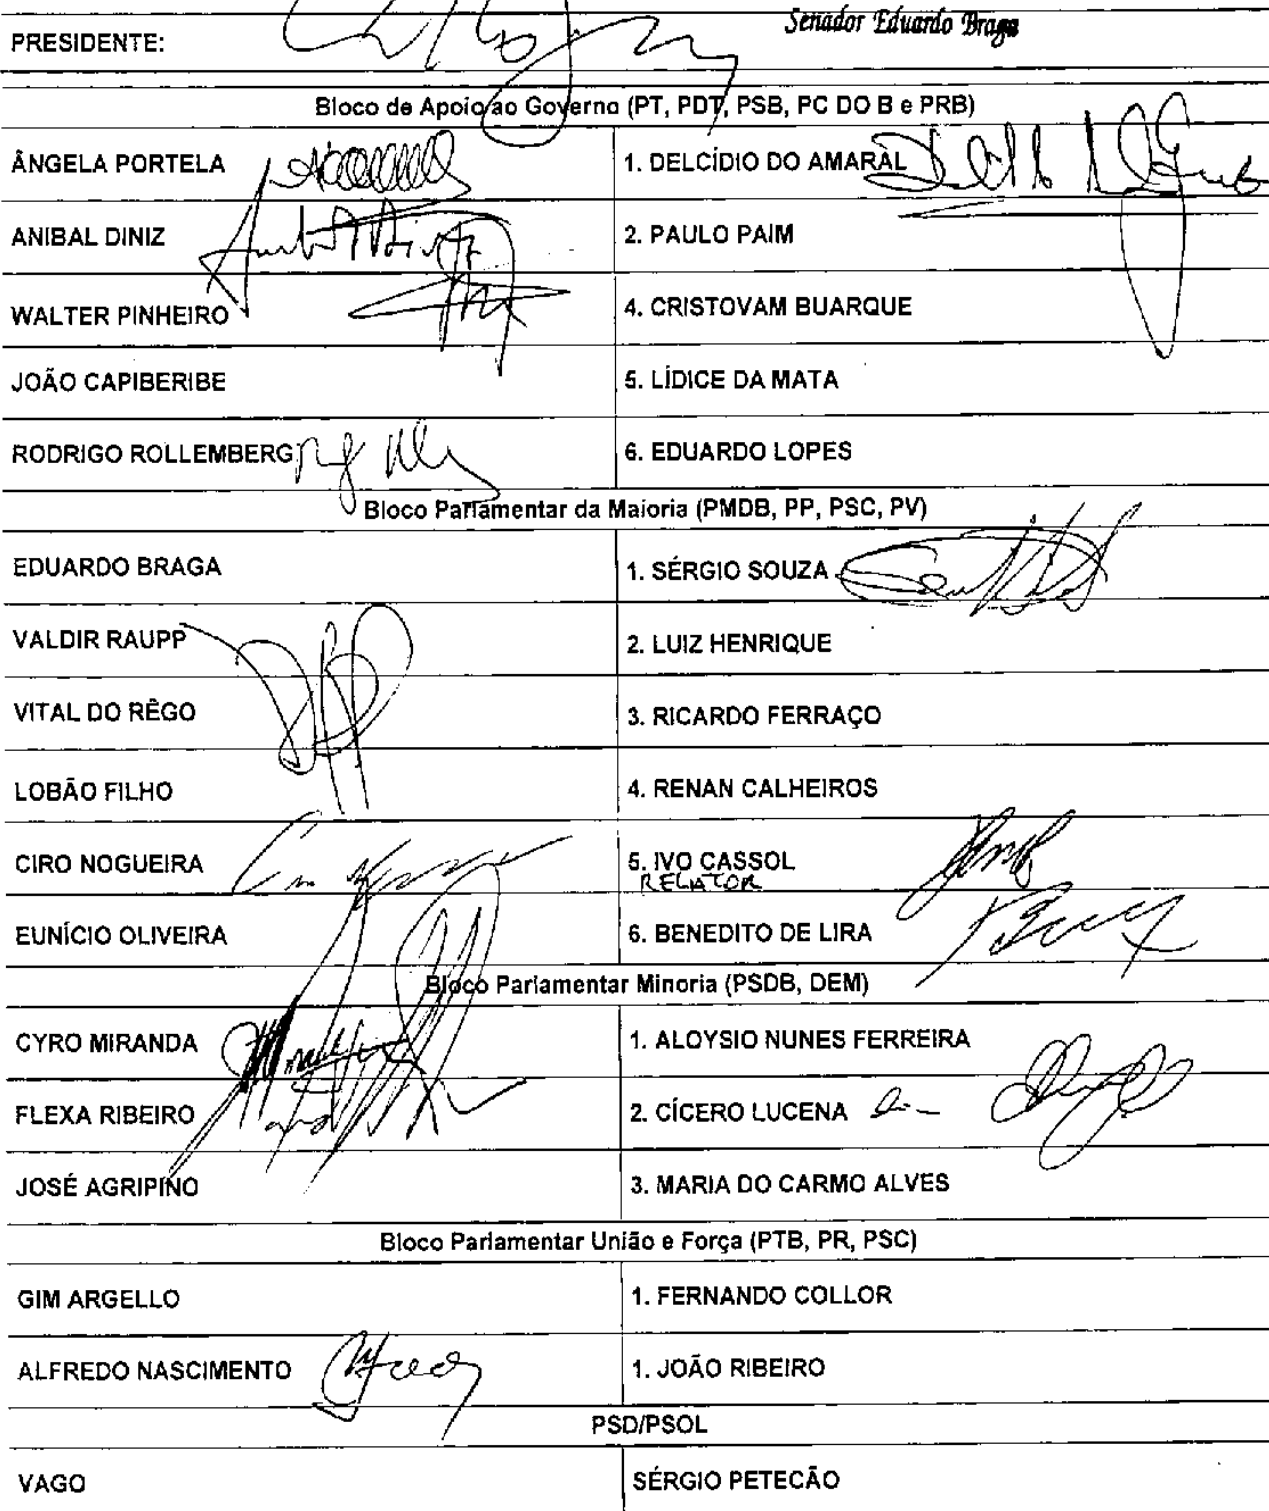 Senador Eduardo Braga
PRESIDENTE:
Bloco de Apoio ao Governo (PT, PDT, PSB, PC DO B e PRB)
ÂNGELA PORTELA 1. DELCÍDIO DO AMARAL
ANIBAL DINIZ 2. PAULO PAIM
WALTER PINHEIRO 4. CRISTOVAM BUARQUE
JOÃO CAPIBERIBE 5. LÍDICE DA MATA
RODRIGO ROLLEMBERG 6. EDUARDO LOPES
Bloco Parlamentar da Maioria (PMDB, PP, PSC, PV)
EDUARDO BRAGA 1. SÉRGIO SOUZA
VALDIR RAUPP 2. LUIZ HENRIQUE
VITAL DO RÊGO 3. RICARDO FERRAÇO
LOBÃO FILHO 4. RENAN CALHEIROS
CIRO NOGUEIRA 5. IVO CASSOL
RELATOR
EUNÍCIO OLIVEIRA 6. BENEDITO DE LIRA
Bloco Parlamentar Minoria (PSDB, DEM)
CYRO MIRANDA 1. ALOYSIO NUNES FERREIRA
FLEXA RIBEIRO 2. CÍCERO LUCENA
JOSÉ AGRIPINO 3. MARIA DO CARMO ALVES
Bloco Parlamentar União e Força (PTB, PR, PSC)
GIM ARGELLO 1. FERNANDO COLLOR
ALFREDO NASCIMENTO 1. JOÃO RIBEIRO
PSD/PSOL
VAGO SÉRGIO PETECÃO